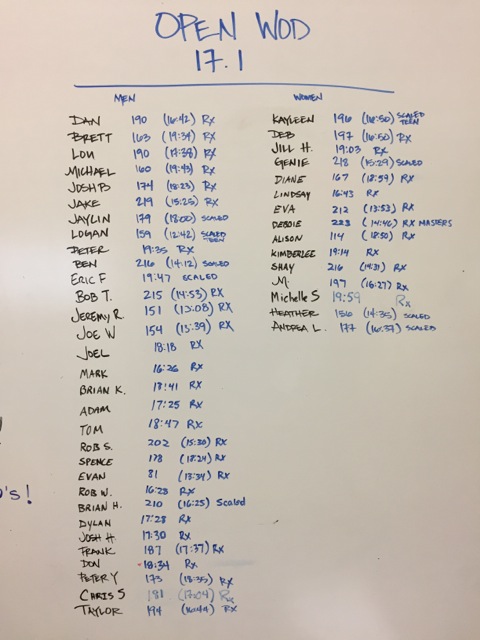 OPEN WOD
17.1
MEN
DAN 190 (16:42) Rx
BRETT 163 (19:34) Rx
LOU 190 (17:38) Rx
MICHAEL 160 (19:43) Rx
JOSH B 174 (18:23) Rx
JAKE 219 (15:25) Rx
JAYLIN 179 (18:00) SCALED
LOGAN 159 (12:42) SCALED TEEN
PETER 19:35 Rx
BEN 216 (14:12) SCALED
ERIC F 19:47 SCALED
BOB T. 215 (14:53) RX
JEREMY R. 151 (13:08) RX
JOE W 154 (13:39) RX
JOEL 18:18 RX
MARK 16:26 Rx
BRIAN K. 18:41 Rx
ADAM 17:25 Rx
TOM 18:47 Rx
ROB S. 202 (15:30) Rx
SPENCE 178 (18:24) Rx
EVAN 81 (13:34) Rx
ROB W. 16:28 Rx
BRIAN H. 210 (16:25) Scaled
DYLAN 17:28 Rx
JOSH H. 17:30 Rx
FRANK 187 (17:37) Rx
DON 18:34 Rx
PETER Y 173 (18:35) Rx
CHRIS S 181 (17:04) Rx
TAYLOR 194 (16:44) Rx
WOMEN
KAYLEEN 196 (16:50) SCALED TEEN
DEB 197 (16:50) Rx
JILL H. 19:03 Rx
GENIE 218 (15:29) SCALED
DIANE 167 (18:59) Rx
LINDSAY 16:43 Rx
EVA 212 (13:53) Rx
DEBBIE 223 (14:46) RX MASTERS
ALISON 114 (18:50) Rx
KIMBERLEE 19:14 Rx
SHAY 216 (14:31) Rx
M. 197 (16:27) Rx
Michelle S 19:59 Rx
HEATHER 156 (14:35) SCALED
ANDREA L. 177 (16:37) SCALED
O's!